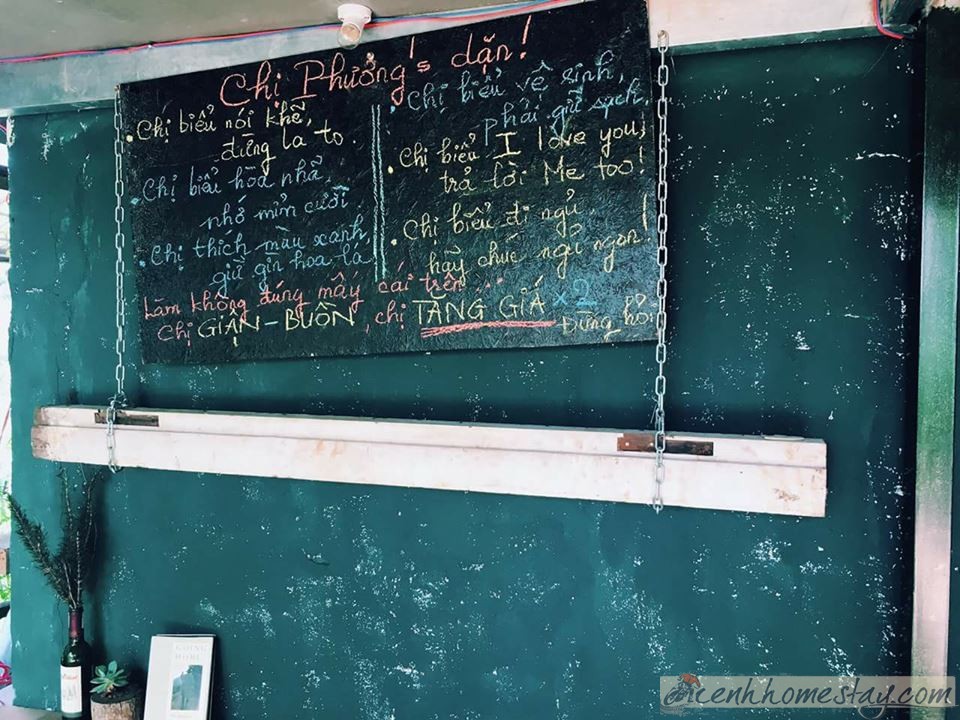 Chị Phưởng's dặn!
• Chị biểu nói khẽ,
đừng la to.
• Chị biểu hòa nhã,
nhớ mỉm cười.
• Chị thích màu xanh,
giữ gìn hoa lá
• Chị biểu vệ sinh,
phải giữ sạch.
• Chị biểu I love you,
trả lời Me too!
• Chị biểu đi ngủ,
hãy chúc ngủ ngon!
Làm không đúng mấy cái trên...
Chị GIẬN - BUỒN, chị TĂNG GIÁ x2
Đừng hỏi
GOING
HOME
cenhhomestay.com